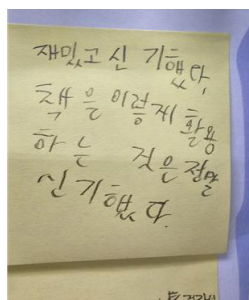 재밌고 신 기했다,
책 을 이렇게 활용
하 는 것은 정말
신 기했 다.